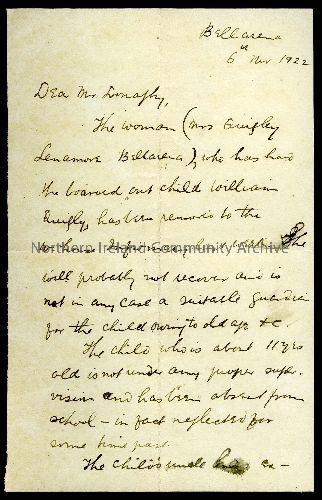 Bellarena
6th Nov 1922
Dear Mr Donaghy,
The woman (Mrs Quigley
Lenamore Bellarena), who has had
the boarded out child William
Quigly, has been removed to the
Northern Ireland Community Archive
She
will probably not recover and is
not in any case a suitable guardian
for the child owing to old age &c.
The child who is about 11 yrs
old is not under any proper super-
vision and has been absent from
school – in fact neglected for
some time past.
The child's uncle